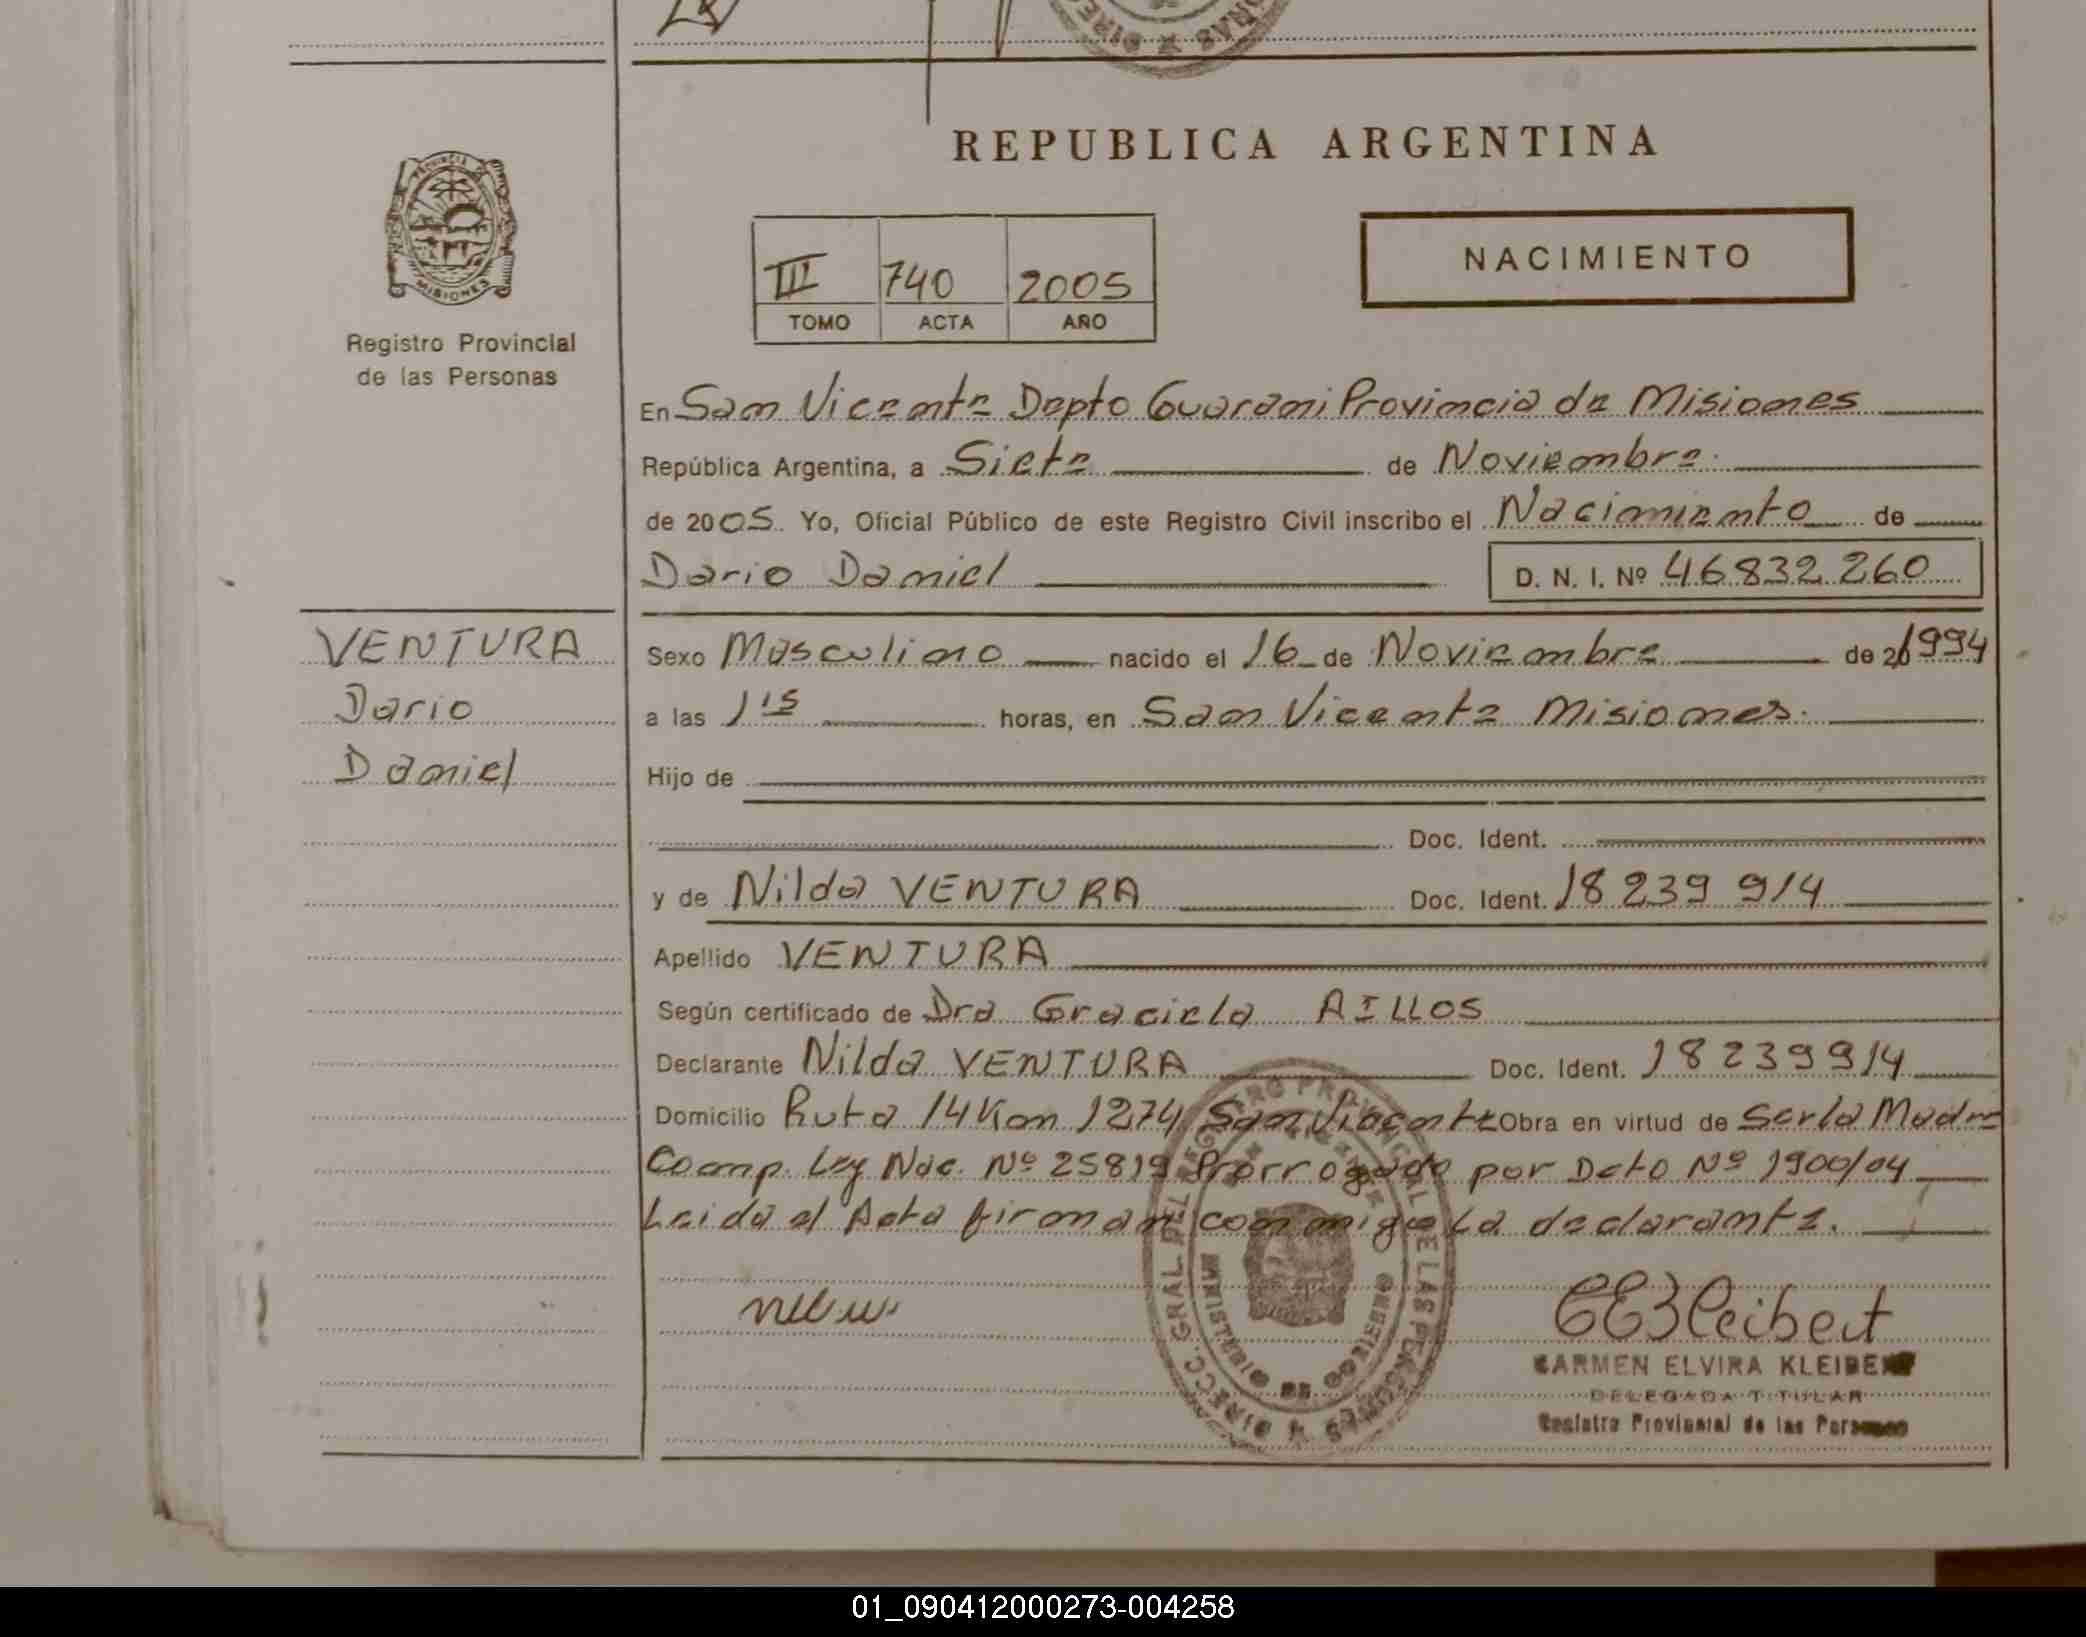 REPUBLICA ARGENTINA
PROVINCIA DE MISIONES
Registro Provincial
de las Personas
III 740 2005
TOMO ACTA AÑO
NACIMIENTO
En San Vicente Depto Guarani Provincia de Misiones
República Argentina, a Siete de Noviembre
de 2005. Yo, Oficial Público de este Registro Civil inscribo el Nacimiento de
Dario Daniel D. N. I. Nº 46832260
VENTURA
Dario
Daniel
Sexo Masculino nacido el 16 de Noviembre de 1994
a las 1 15 horas, en San Vicente Misiones.
Hijo de
Doc. Ident.
y de Nilda VENTURA Doc. Ident. 18 239 914
Apellido VENTURA
Según certificado de Dra Graciela AILLOS
Declarante Nilda VENTURA Doc. Ident. 18239914
Domicilio Ruta 14 Km 1274 San Vicente Obra en virtud de Ser la Madre
Comp. Ley Nac. Nº 25819 Prorrogada por Dcto Nº 1900/04
Leida el Acta firman conmigo La declarante.
CARMEN ELVIRA KLEIBERT
DELEGADA TITULAR
Registro Provincial de las Personas
DIRECC. GRAL. DEL REGISTRO PROVINCIAL DE LAS PERSONAS
MINISTERIO DE GOBIERNO
01_090412000273-004258